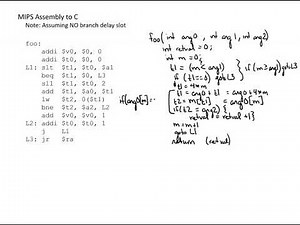 MIPS Assembly to C
Note: Assuming NO branch delay slot
foo:
addi $v0, $0, 0
addi $t0, $0, 0
L1: slt $t1, $t0, $a1
beq $t1, $0, L3
sll $t1, $t0, 2
add $t1, $a0, $t1
lw $t2, 0($t1)
bne $t2, $a2, L2
addi $v0, $v0, 1
L2: addi $t0, $t0, 1
j L1
L3: jr $ra
foo(int arg0, int arg1, int arg2)
int retval = 0;
int m = 0;
L1: t1 = (m < arg1) } if (m ≥ arg1) goto L3
if (t1==0) goto L3
t1 = 4*m
t1 = arg0 + t1 = arg0+4*m
if(arg0[m]= t2 = m[t1] = arg0[m]
if (t2 = arg2) {
retval = retval + 1}
m = m+1
goto L1
return (retval)